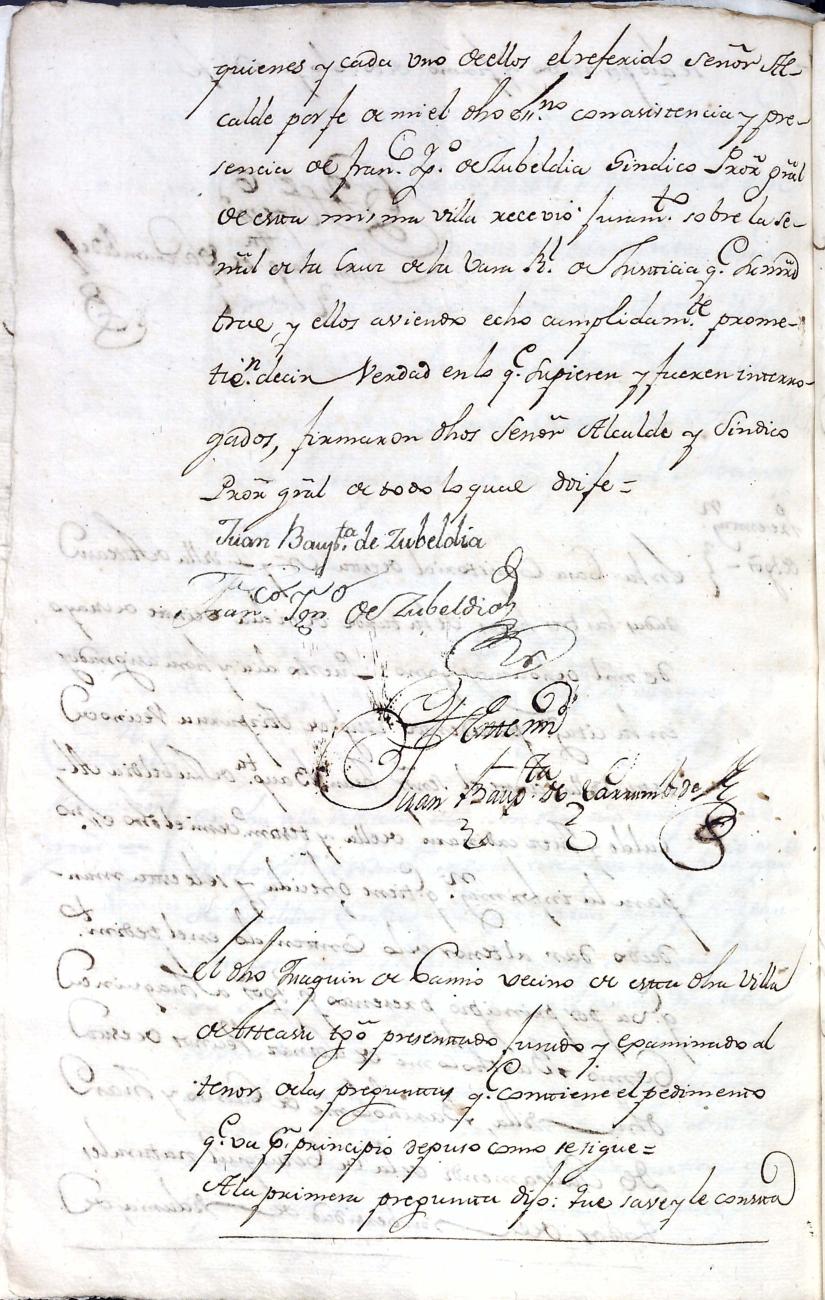 quienes y cada uno de ellos el referido Señor Al-
calde por fe de mi el dho ess.no con asistencia y pre-
sencia de fran.co Ig.o de Zubeldia Sindico Pror gral
de esta misma villa recevio juram.to sobre la se-
ñal de la Cruz de la Vara Rl. de Justicia q.e su mrd
trae, y ellos aviendo echo cumplidam.te prome-
tie.n decir Verdad en lo q.e supieren y fueren interro-
gados, firmaron dhos Señor Alcalde y Sindico
Pror gral de todo lo qual doi fe =
Juan Baup.ta de Zubeldia
Fran.co Ign.o de Zubeldia
Ante mi
Juan Baup.ta de Larrumbide
El dho Juaquin de Camio vecino de esta dha Villa
de Atteasu tgo presenttado jurado y examinado al
tenor de las pregunttas q.e conttiene el pedimento
q.e va p.r principio depuso como se sigue =
A la primera pregunta dijo: Que save y le constta